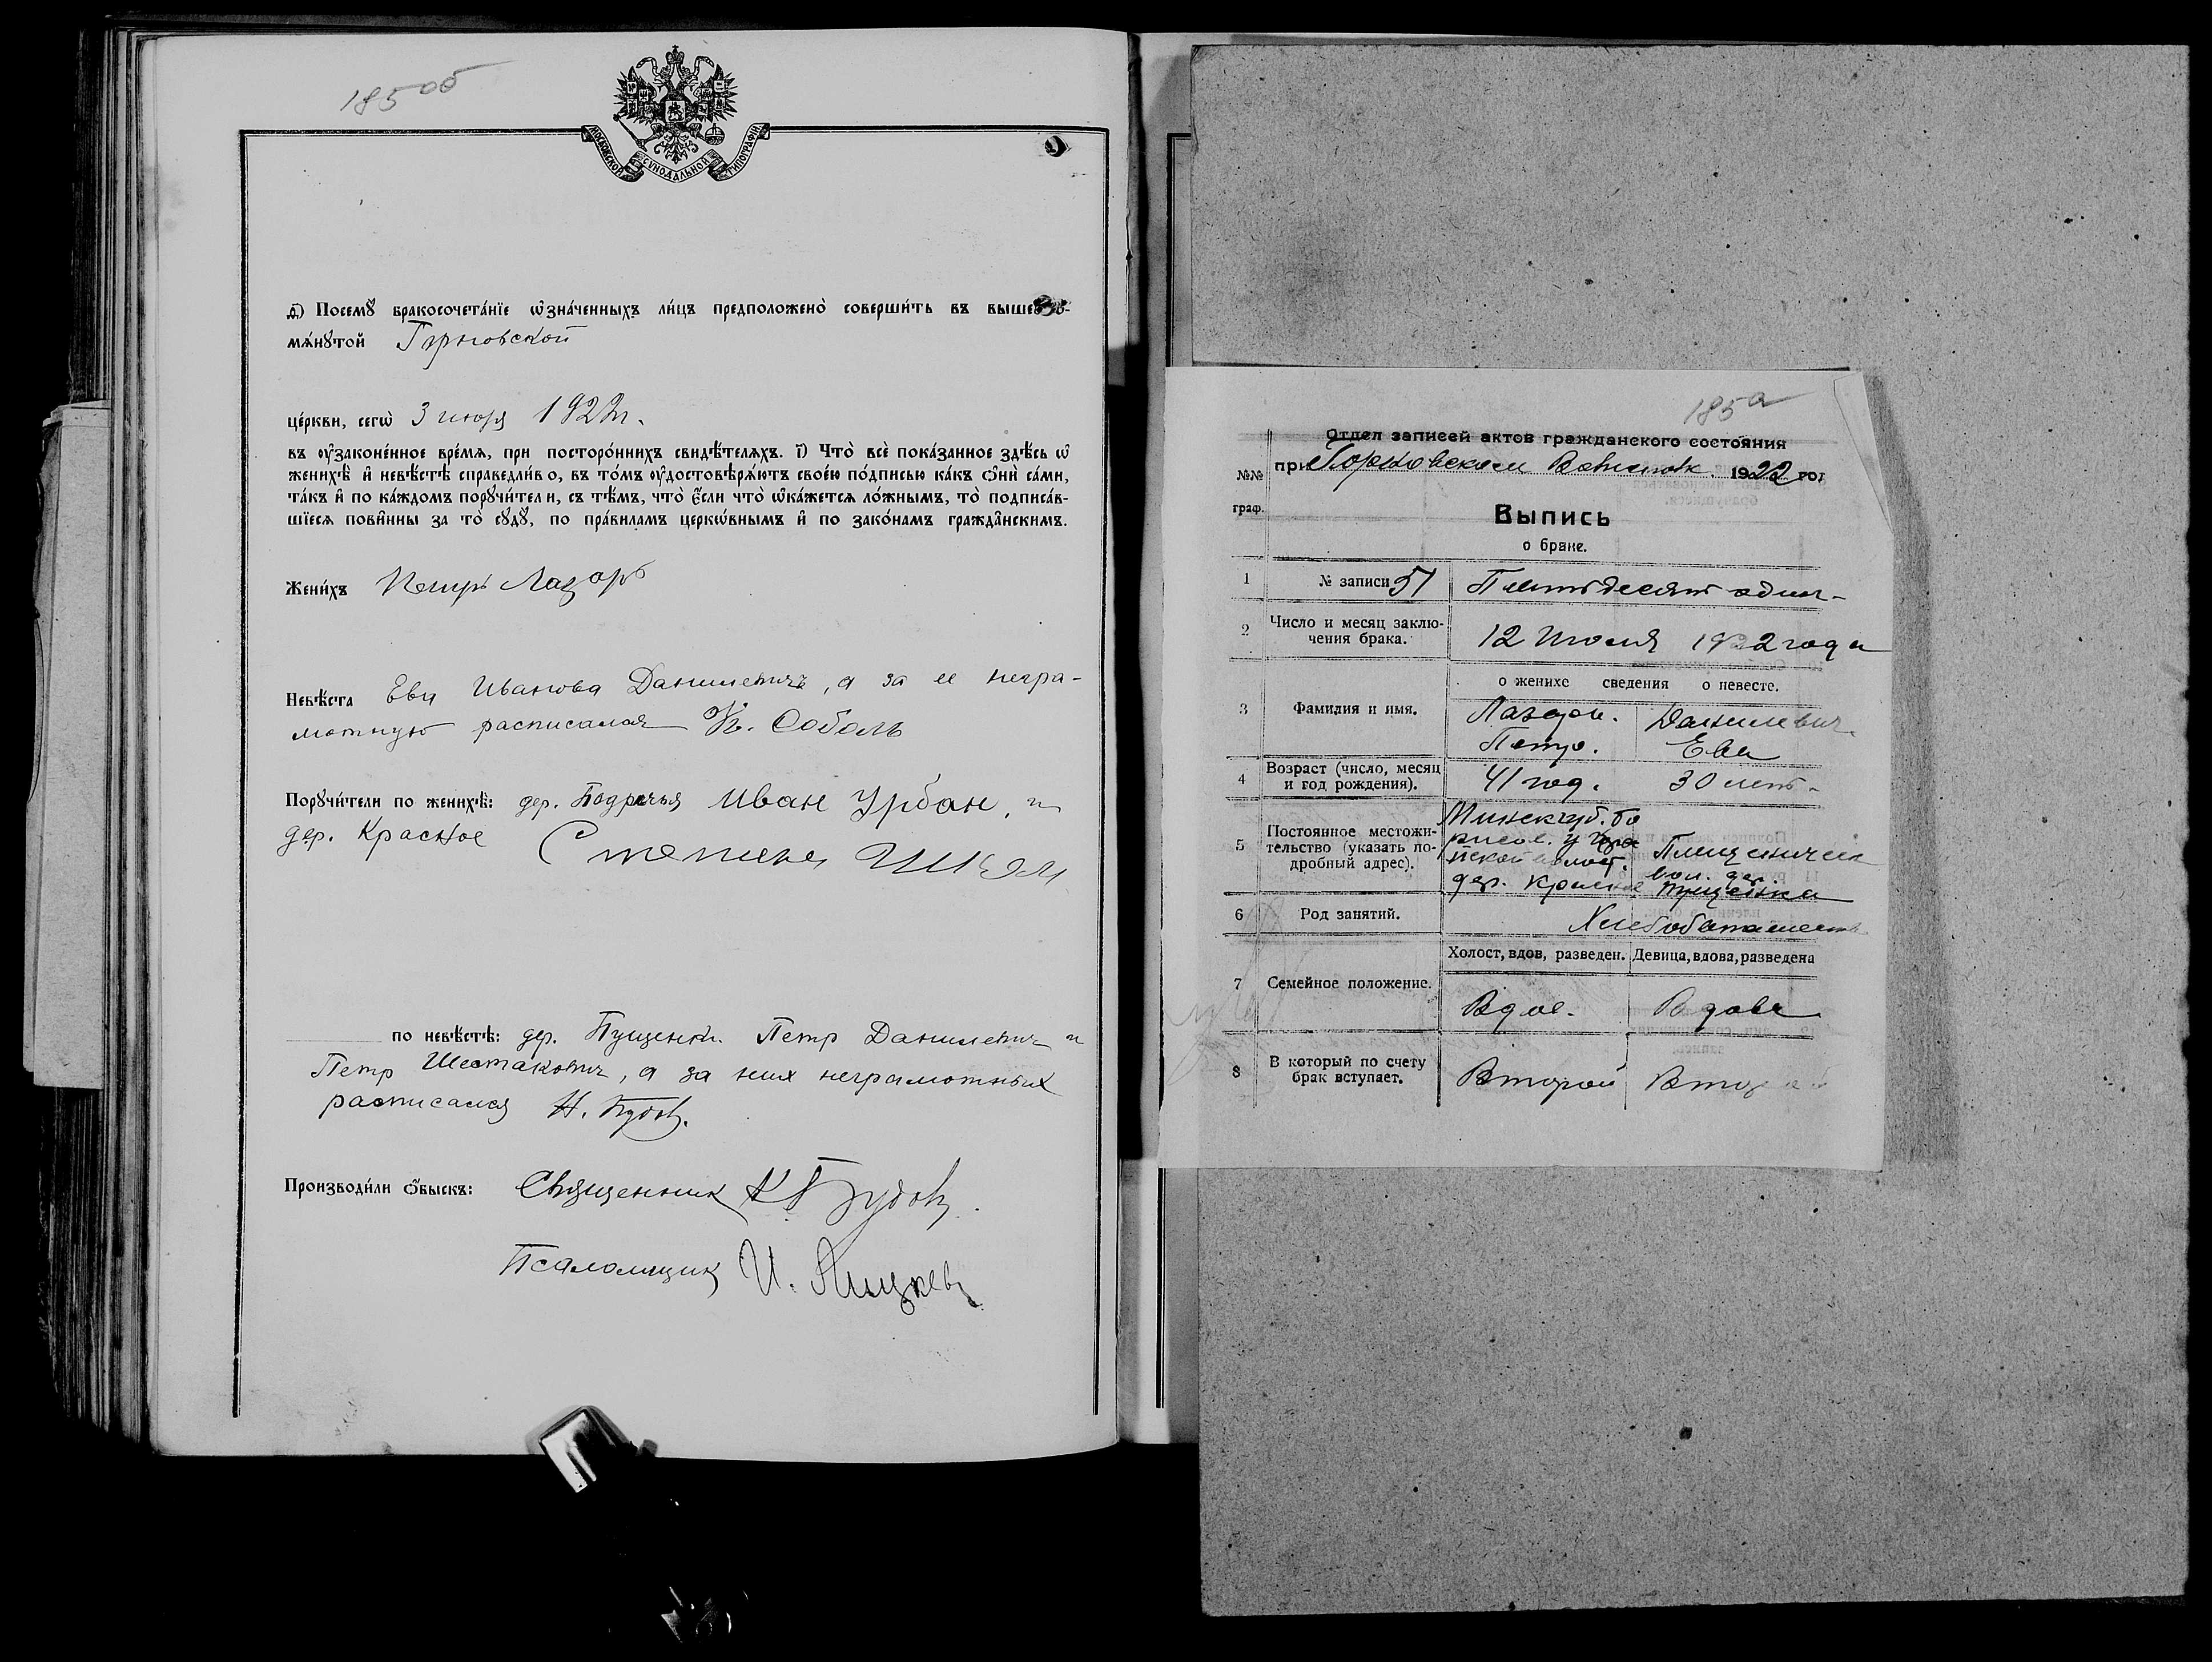 185 об
МОСКОВСКОЙ СѴНОДАЛЬНОЙ ТИПОГРАФІИ
д҃) Посемꙋ̀ бракосочета́нїе ѡ҆зна́ченныхъ ли́цъ предположено̀ соверши́ть въ выше
мѧ́нꙋтой
це́ркви, сегѡ̀ 3 1922 г.
въ ᲂу҆законе́нное вре́мѧ, при посторо́ннихъ свидѣ́телѧхъ. і҃) Что̀ всѐ пока́занное здѣ́сь ѡ҆
женихѣ̀ и҆ невѣ́стѣ справедли́во, въ то́мъ ᲂу҆достовѣрѧ́ютъ свое́ю по́дписью ка́къ ѻ҆нѝ са́ми,
та́къ и҆ по ка́ждомъ порꙋчи́тели, съ тѣ́мъ, что̀ є҆́сли что̀ ѡ҆ка́жетсѧ ло́жнымъ, то̀ подписа́в-
шїесѧ пови́нны за то̀ сꙋдꙋ̀, по пра́виламъ церкѡ́внымъ и҆ по зако́намъ гражда́нскимъ.
Жени́хъ Петр Лазарь
Невѣ́ста Ева Иванова Данилевич, а за ее негра-
мотную расписался К. Соболь
Порꙋчи́тели по женихѣ̀: дер. Подречья Иван Урбан, и
дер. Красное Степан
по невѣ́стѣ: дер. Пущенки Петр Данилевич и
Петр Шестакович, а за них неграмотных
расписался
Производи́ли ѻ҆́быскъ: Священник
Псаломщик И.
185а
Отдел записей актов гражданского состояния
при 1922 год
№№ граф.
Выпись
о браке.
1 № записи 51 Пятьдесят один
2 Число и месяц заклю-
чения брака. 12 Июля 1922 года
о женихе сведения о невесте.
3 Фамилия и имя. Лазарь. Данилевич
Петр. Ева
4 Возраст (число, месяц
и год рождения). 41 год. 30 лет.
5 Постоянное местожи-
тельство (указать по-
дробный адрес). Минск губ. Бо
рисов. у.
волост.
дер. Красное
вол. дер.
Пущенки
6 Род занятий. Хлебопашество
7 Семейное положение. Холост, вдов, разведен. Девица, вдова, разведена
Вдов. Вдова
8 В который по счету
брак вступает. Второй